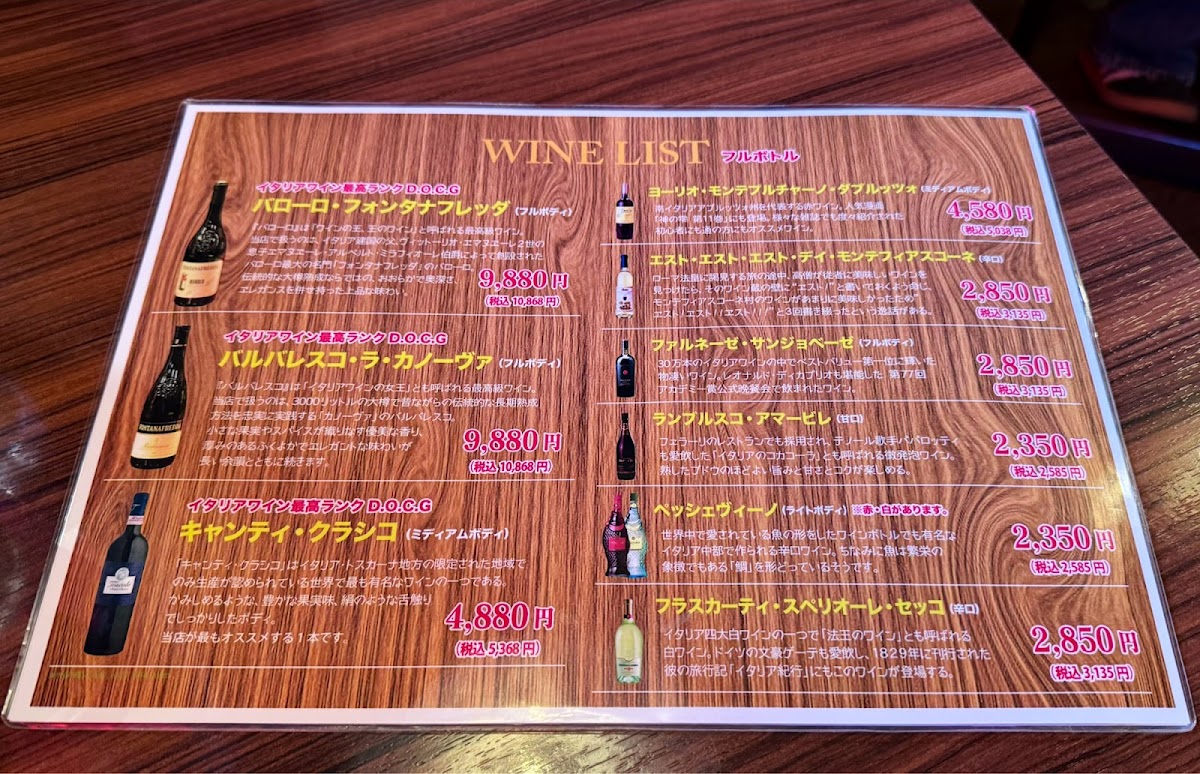 WINE LIST フルボトル
イタリアワイン最高ランクD.O.C.G
バローロ・フォンタナフレッダ (フルボディ)
『バローロ』は「ワインの王、王のワイン」と呼ばれる最高級ワイン。
当店で扱うのは、イタリア建国の父、ヴィットーリオ・エマヌエーレ2世の
息子エマヌエーレ・アルベルト・ミラフィオーレ伯爵によって創設された
バローロ最大の名門「フォンタナフレッダ」のバローロ。
伝統的な大樽熟成ならではの、おおらかで奥深さ、
エレガンスを併せ持った上品な味わい。
9,880円
(税込10,868円)
イタリアワイン最高ランクD.O.C.G
バルバレスコ・ラ・カノーヴァ (フルボディ)
『バルバレスコ』は「イタリアワインの女王」とも呼ばれる最高級ワイン。
当店で扱うのは、3000リットルの大樽で昔ながらの伝統的な長期熟成
方法を忠実に実践する「カノーヴァ」のバルバレスコ。
小さな果実やスパイスが織りなす優美な香り、
厚みのあるふくよかでエレガントな味わいが
長い余韻とともに続きます。
9,880円
(税込10,868円)
イタリアワイン最高ランクD.O.C.G
キャンティ・クラシコ (ミディアムボディ)
「キャンティ・クラシコ」はイタリア・トスカーナ地方の限定された地域で
のみ生産が認められている世界で最も有名なワインの一つである。
かみしめるような、豊かな果実味、絹のような舌触り
でしっかりしたボディ。
当店が最もオススメする1本です。
4,880円
(税込5,368円)
ヨーリオ・モンテプルチャーノ・ダブルッツォ (ミディアムボディ)
南イタリアアブルッツォ州を代表する赤ワイン。人気漫画
「神の雫 第11巻」にも登場。様々な雑誌でも度々紹介された
初心者にも通の方にもオススメワイン。
4,580円
(税込5,038円)
エスト・エスト・エスト・デイ・モンテフィアスコーネ (辛口)
ローマ法皇に閲見する旅の途中、高僧が従者に美味しいワインを
見つけたら、その蔵の壁に"エスト!"と書いておくよう命じ、
モンテフィアスコーネ村のワインがあまりに美味しかったため"
エスト!エスト!!エスト!!!"と3回書き綴ったという逸話がある。
2,850円
(税込3,135円)
ファルネーゼ・サンジョベーゼ (フルボディ)
30万本のイタリアワインの中でベストバリュー第一位に輝いた
物凄いワイン。レオナルド・ディカプリオも堪能した 第77回
アカデミー賞公式晩餐会で飲まれたワイン。
2,850円
(税込3,135円)
ランブルスコ・アマービレ (甘口)
フェラーリのレストランでも採用され、テノール歌手パバロッティ
も愛飲した「イタリアのコカコーラ」とも呼ばれる微発泡ワイン。
熟したブドウのほどよい旨みと甘さとコクが楽しめる。
2,350円
(税込2,585円)
ペッシェヴィーノ (ライトボディ) ※赤・白があります。
世界中で愛されている魚の形をしたワインボトルでも有名な
イタリア中部で作られる辛口ワイン。ちなみに魚は繁栄の
象徴でもある「鯛」を形どっているそうです。
2,350円
(税込2,585円)
フラスカーティ・スペリオーレ・セッコ (辛口)
イタリア四大白ワインの一つで「法王のワイン」とも呼ばれる
白ワイン。ドイツの文豪ゲーテも愛飲し、1829年に刊行された
彼の旅行記「イタリア紀行」にもこのワインが登場する。
2,850円
(税込3,135円)
FONTANAFREDDA